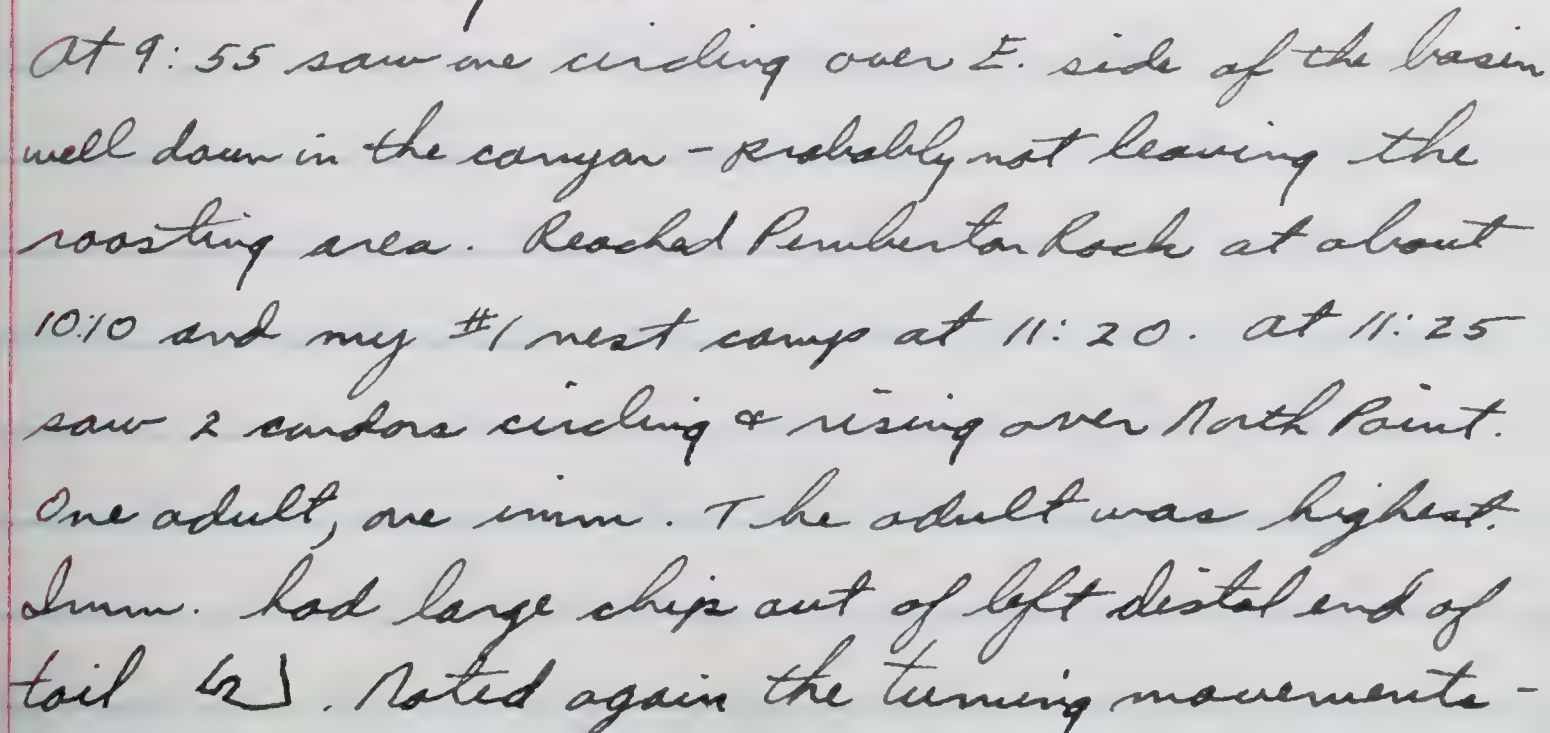 At 9:55 saw one circling over E. side of the basin
well down in the canyon - probably not leaving the
roosting area. Reached Pemberton Rock at about
10:10 and my #1 nest camp at 11:20. At 11:25
saw 2 condors circling & rising over North Point.
One adult, one imm. The adult was highest.
Imm. had large chip out of left distal end of
tail . Noted again the turning movements -